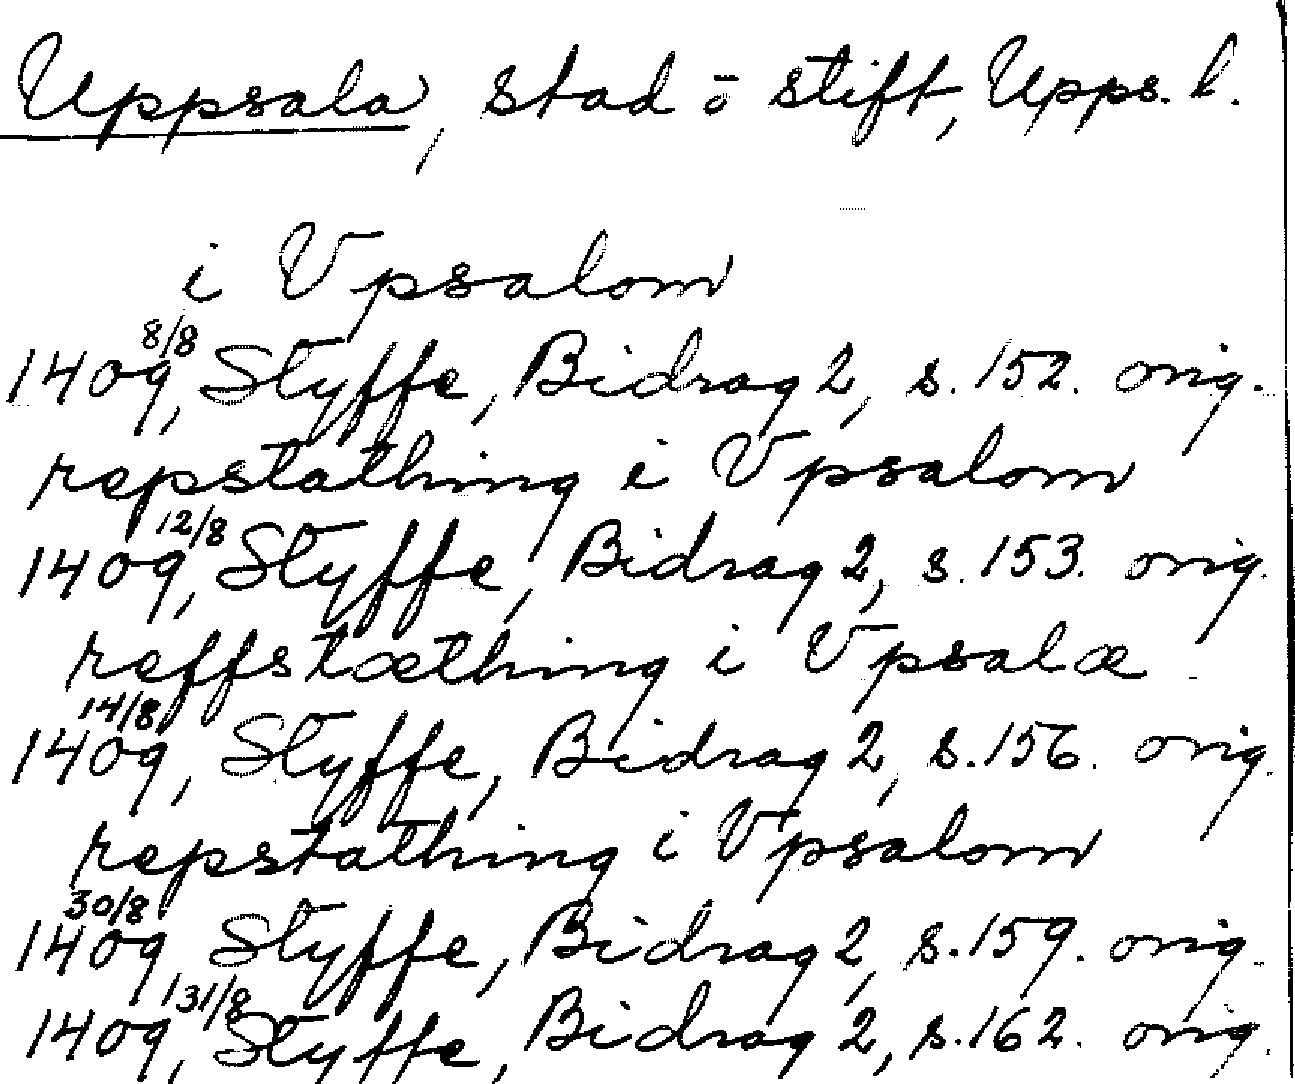 Uppsala, stad o stift, Upps. l.
i Vpsalom
1409 8/8, Styffe, Bidrag 2, s. 152. orig.
repstathing i Vpsalom
1409 12/8, Styffe, Bidrag 2, s. 153. orig.
reffstæthing i Vpsalæ
1409 14/8, Styffe, Bidrag 2, s. 156. orig.
repstathing i Vpsalom
1409 30/8, Styffe, Bidrag 2, s. 159. orig.
1409 31/8, Styffe, Bidrag 2, s. 162. orig.